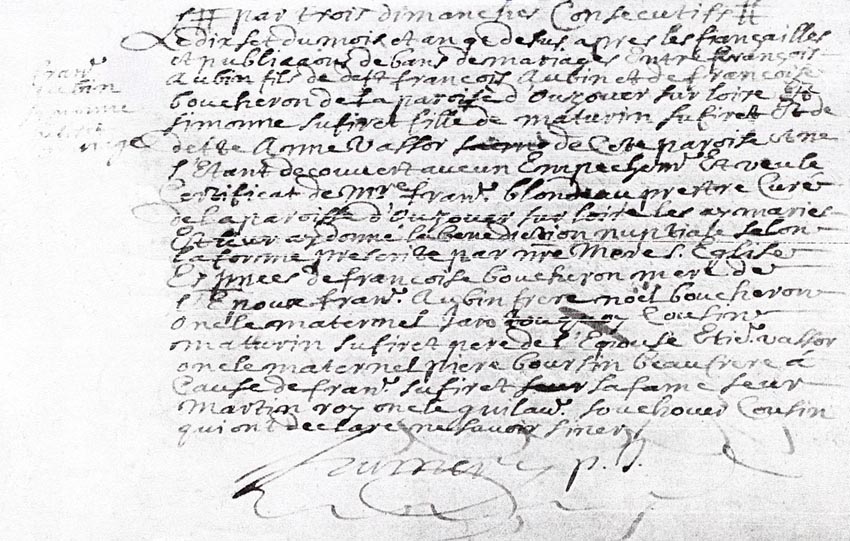 s## par trois dimanches Consecutifs ##
Le dix set du mois et an q. desus apres les fiançailles
et publiaōns de bans de mariages Entre françois
Aubin fils de deft françois Aubin et de françoise
boucheron de la paroisse d'Ouzouer sur loire Et
Simonne sufiret fille de maturin sufiret Et de
deftte Anne Vassor de Cete paroise et ne
s'Etant decouvert aucun Empechemt. Et veu le
Certificat de Mre. franc. blondeau prestre Curé
de la paroisse d'Ouzouer sur loire les ay mariés
Et leur ay donné la benediction nuptiale selon
la forme prescrite par nre Mere Ste. Eglise
Es pnces de françoise boucheron mere de
l'Epoux franc. Aubin frere noël boucheron
oncle maternel Cousin
maturin sufiret pere de l'Epouse Etie. vassor
oncle maternel piere boursin beaufrere á
Cause de franc. sufiret sa fame leur
Martin roy oncle guilau. souchouer Cousin
qui ont declaré ne savoir siner
p. d.
franc.
Aubin
simonne
sufiret